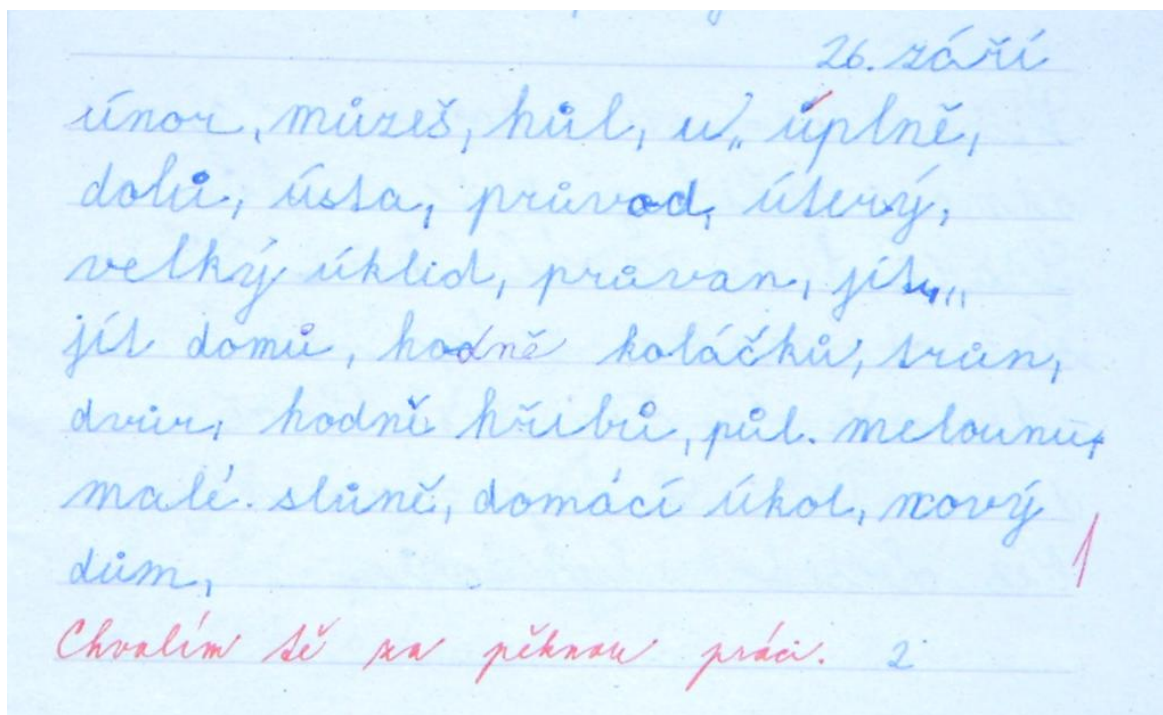 26. září
únor, můžeš, hůl, u„ úplně,
dolů, ústa, průvod, úterý,
velký úklid, průvan, jít„„
jít domů, hodně koláčků, trůn,
dvůr, hodně hřibů, půl. melounu,
malé. slůně, domácí úkol, nový
dům,
1
Chvalím tě za pěknou práci. 2